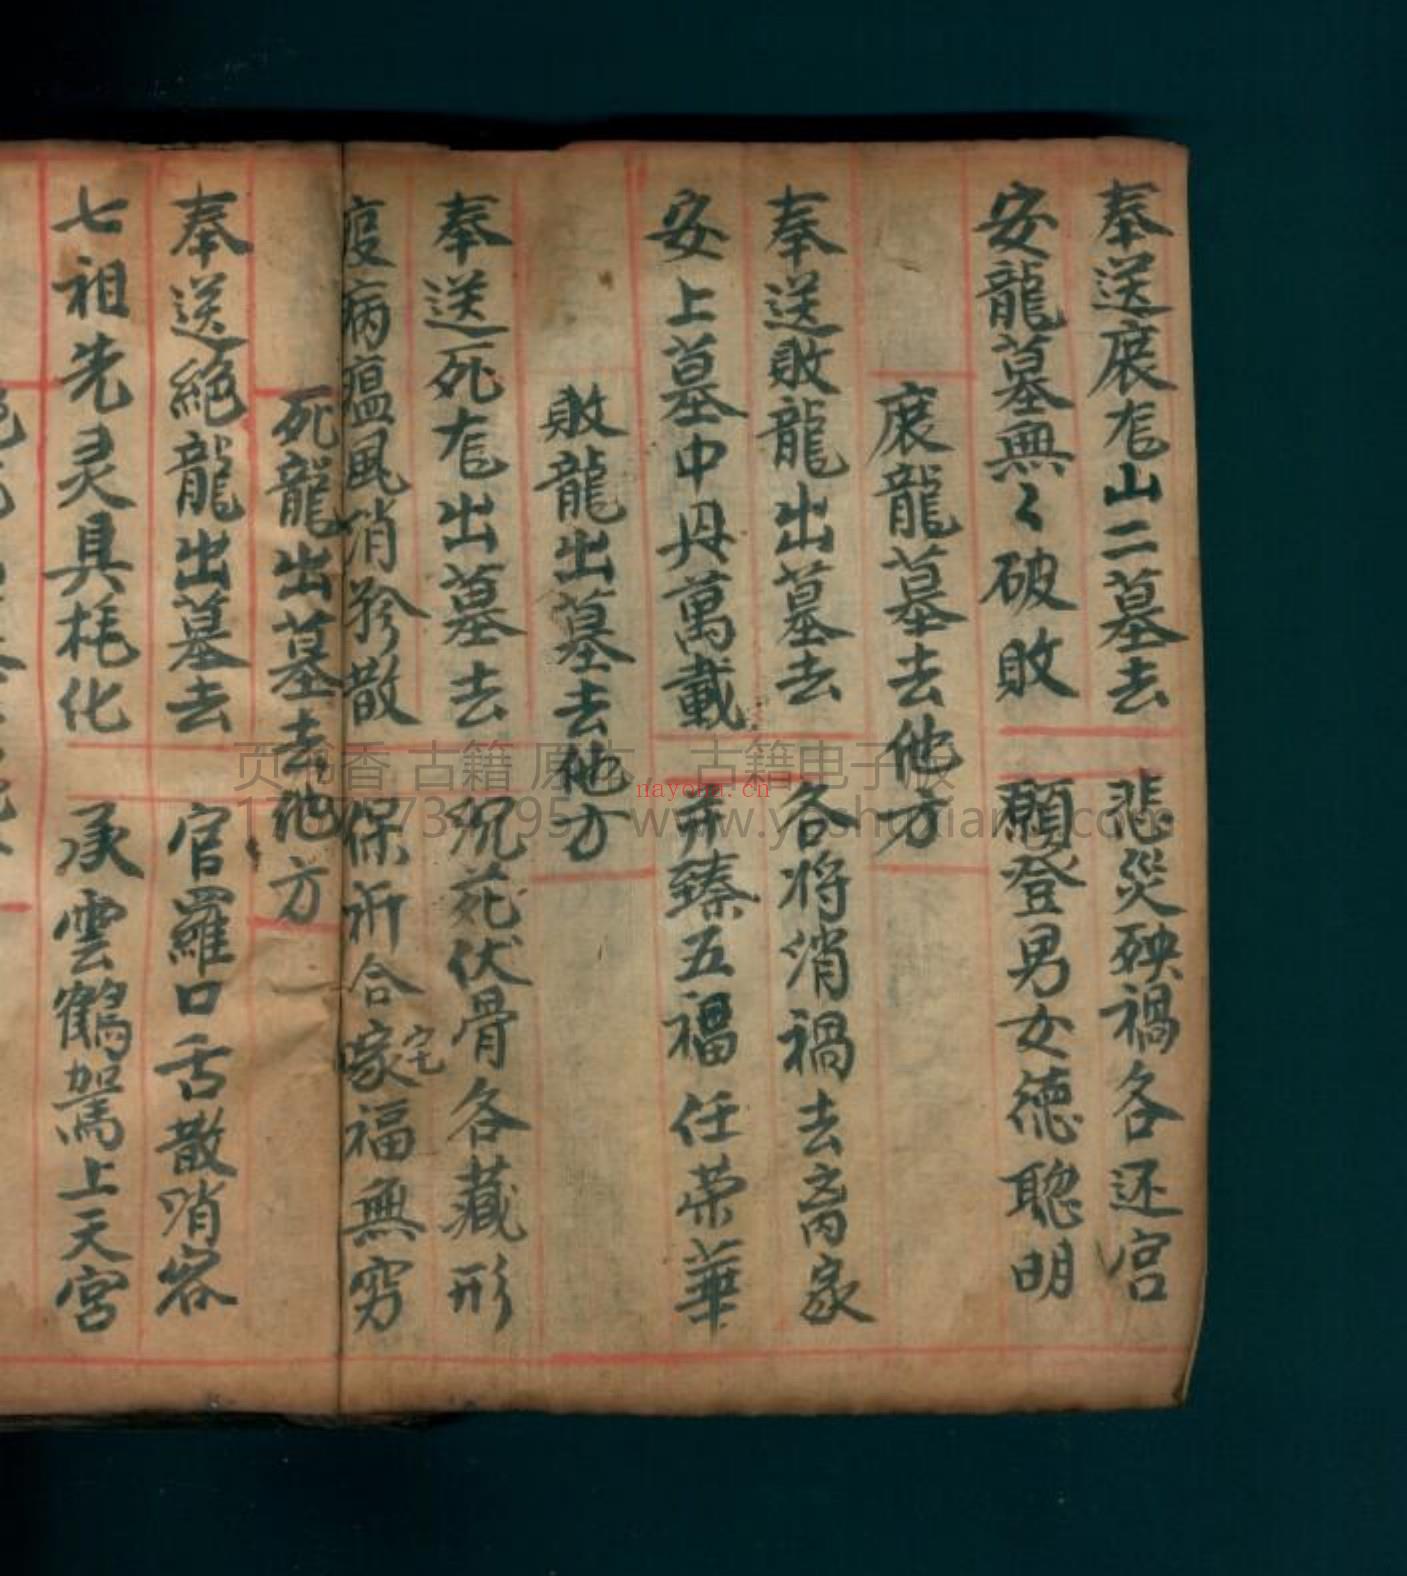 奉送廃尨山二墓去 悲災殃禍各还宫
安龍墓無々破敗 願登男女德聰明
廃龍墓去他方
奉送敗龍出墓去 各将消禍去离家
安上墓中丹萬載 并臻五福任荣華
敗龍出墓去他方
奉送死尨出墓去 沉死伏骨各藏形
疫病瘟風消散 保祈合家宅福無穷
死龍出墓去他方
奉送絕龍出墓去 官羅口舌散消容
七祖先灵具耗化 承雲鶴駕上天宫
nayona.cn